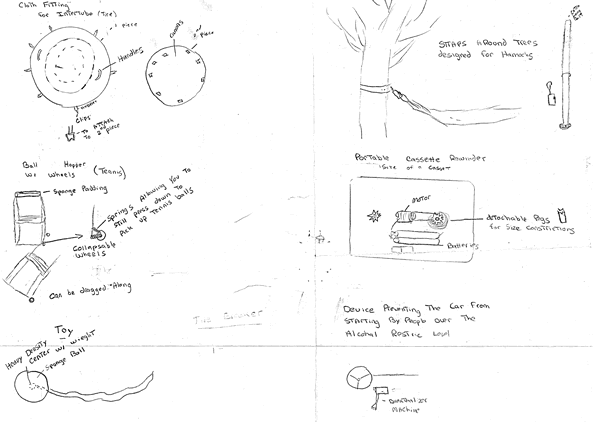 Cloth Fitting
For Intertube (Tire)
1st piece
Handles
Clips
To Attach
To 2nd piece
piece
Straps Around Trees
designed For Hamocks
Ball Hopper
w/ Wheels (Tennis)
Sponge Padding
Springs Allowing You To
still press down To
Pick up Tennis balls
Collapsable
Wheels
Can be dragged Along
Portable Cassette Rewinder
Size of a
Motor
detachable Pegs
For Size Constrictions
Batteries
Toy
Heavy Density
Center w/ weight
Sponge Ball
Device Preventing The Car From
Starting By People over The
Alcohol
Machine